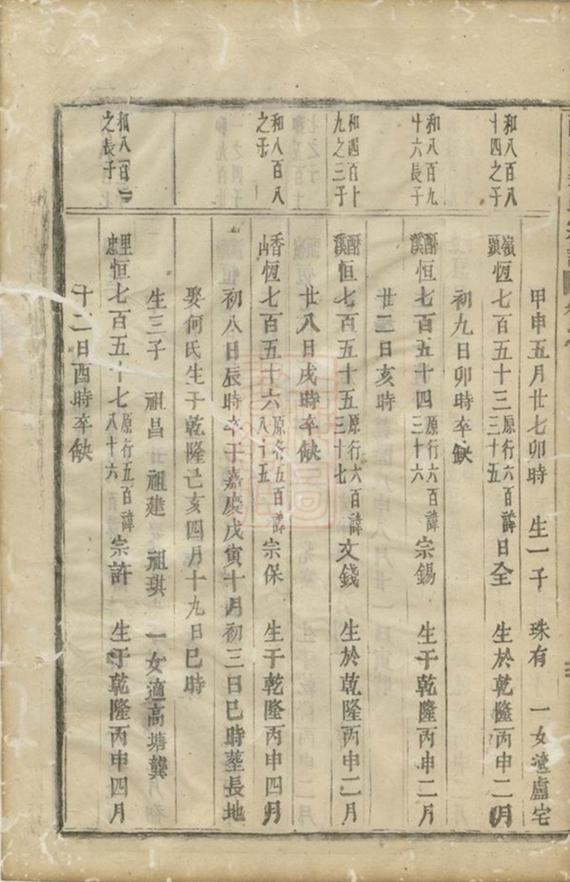 甲申五月廿七卯時 生一子 珠有 一女適盧宅
和八百八十四之子
嶺頭 恆七百五十三 原行六百三十五 諱日全 生於乾隆丙申二月
初九日卯時卒缺
和八百九十六長子
酥溪 恒七百五十四 原行六百三十六 諱宗錫 生于乾隆丙申二月
廿三日亥時
和四百十九之三子
酥溪 恒七百五十五 原行六百三十七 諱文錢 生於乾隆丙申二月
廿八日戌時卒缺
和八百八之子
香山 恆七百五十六 原行五百八十五 諱宗保 生于乾隆丙申四月
初八日辰時卒于嘉慶戊寅十月初三日巳時墓長地
娶何氏生于乾隆己亥四月十九日巳時
生三子 祖昌 祖建 祖琪 一女適高塘龔
和八百之長子
里忠 恒七百五十七 原行五百八十六 諱宗許 生于乾隆丙申四月
十二日酉時卒缺